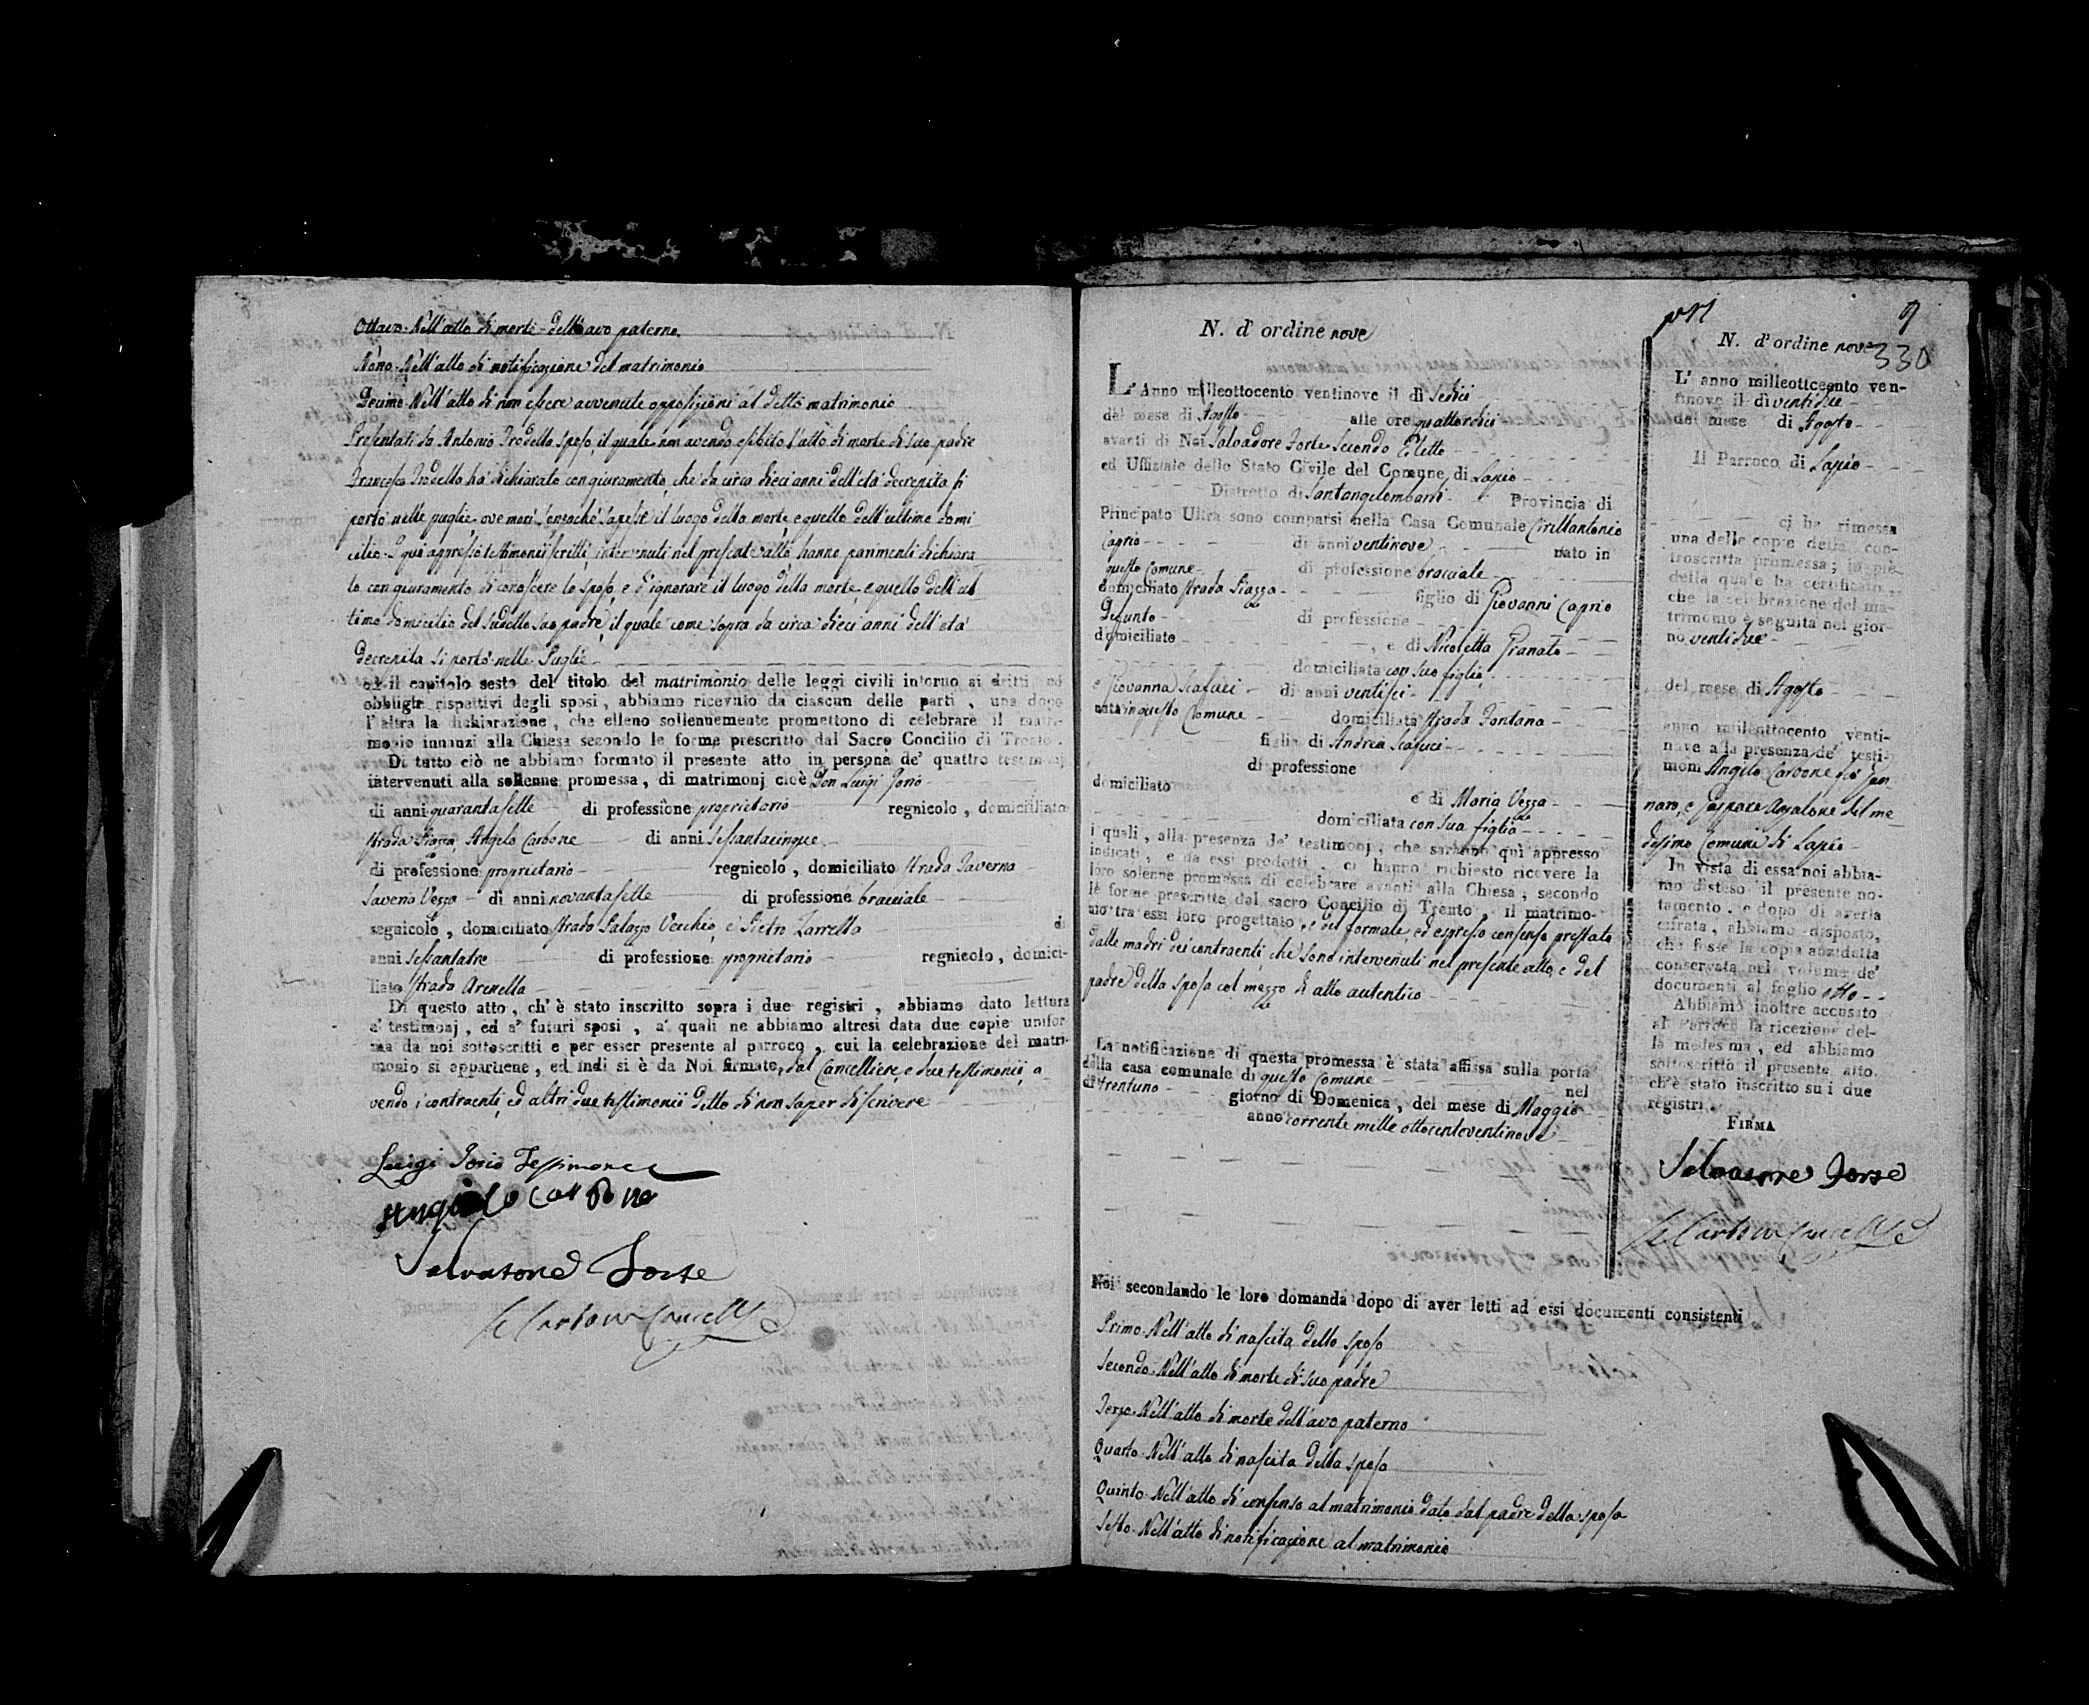 Ottavo. Nell'atto di morte dell'avo paterno
Nono. Nell'atto di notificazione del matrimonio
Decimo. Nell'atto di non essere avvenute opposizioni al detto matrimonio
Presentati da Antonio Trodello sposo, il quale non avendo esibito l'atto di morte di suo padre
Francesco Trodello ha dichiarato con giuramento, che da circa dieci anni dell'età decrepita si
portò nelle puglie, ove morì, senzachè sapesse il luogo della morte, e quello dell'ultimo domi
cilio. I qui appresso testimonii scritti, intervenuti nel presente atto, hanno parimenti dichiara
to con giuramento di conoscere lo sposo, e d'ignorare il luogo della morte, e quello dell'ul
timo domicilio del sudetto suo padre, il quale come sopra da circa dieci anni dell'età
decrepita si portò nelle Puglie
ed il capitolo sesto del titolo del matrimonio delle leggi civili intorno ai dritti ed
obblighi rispettivi degli sposi, abbiamo ricevuto da ciascun delle parti, una dopo
l'altra la dichiarazione, che elleno sollennemente promettono di celebrare il matri-
monio innanzi alla Chiesa secondo le forme prescritto dal Sacro Concilio di Trento.
Di tutto ciò ne abbiamo formato il presente atto in persona de' quattro testimonj
intervenuti alla sollenne promessa, di matrimonj cioè Don Luigi Iorio
di anni quarantasette di professione proprietario regnicolo, domiciliato
strada Piazza, Angelo Carbone di anni sessantacinque
di professione proprietario regnicolo, domiciliato strada Taverna
Saverio Vezza di anni novantasette di professione bracciale
regnicolo, domiciliato strada Palazzo Vecchio, e Pietro Zarrella di
anni sessantatre di professione proprietario regnicolo, domici-
liato strada Arenella
Di questo atto, ch' è stato inscritto sopra i due registri, abbiamo dato lettura
a' testimonj, ed a' futuri sposi, a' quali ne abbiamo altresi data due copie unifor
ma da noi sottoscritti e per esser presente al parroco, cui la celebrazione del matri-
monio si appartiene, ed indi si è da Noi firmato, dal Cancelliere, e due testimonii, a
vendo i contraenti, ed altri due testimonii detto di non saper di scrivere
Luigi Iorio Testimone
Angelo Carbone
Salvatore Forte
N. d' ordine nove
L' Anno milleottocento ventinove il dì Sedici
del mese di Agosto alle ore quattordici
avanti di Noi Salvadore Forte Secondo Eletto
ed Uffiziale dello Stato Civile del Comune di Lapio
Distretto di Santangelombardi Provincia di
Principato Ultra sono comparsi nella Casa Comunale Cirillantonio
Caprio di anni ventinove nato in
questo Comune di professione bracciale
domiciliato strada Piazza figlio di Giovanni Caprio
Defunto di professione
domiciliato , e di Nicoletta Granato
domiciliata con suo figlio
e Giovanna Scafuci di anni ventisei
nata in questo Comune domiciliata strada Fontana
figlia di Andrea Scafuci
di professione
domiciliato
e di Maria Vezza
domiciliata con sua figlia
i quali, alla presenza de' testimonj, che saranno quì appresso
indicati, e da essi prodotti, ci hanno richiesto ricevere la
loro solenne promessa di celebrare avanti alla Chiesa, secondo
le forme prescritte dal sacro Concilio di Trento, il matrimo-
nio tra essi loro progettato, e del formale, ed espresso consenso prestato
dalle madri dei contraenti, che sono intervenuti nel presente atto, e del
padre della sposa col mezzo di atto autentico
La notificazione di questa promessa è stata affissa sulla porta
della casa comunale di questo Comune nel
dì trentuno giorno di Domenica, del mese di Maggio
anno corrente mille ottocentoventinove
Noi secondando le loro domanda dopo di aver letti ad essi documenti consistenti
Primo. Nell'atto di nascita dello sposo
Secondo. Nell'atto di morte di suo padre
Terzo. Nell'atto di morte dell'avo paterno
Quarto. Nell'atto di nascita della sposa
Quinto. Nell'atto di consenso al matrimonio dato dal padre della sposa
Sesto. Nell'atto di notificazione al matrimonio
9
N. d' ordine nove
330
L' anno milleottocento ven-
tinove il dì ventidue
del mese di Agosto
Il Parroco di Lapio
ci ha rimessa
una delle copie della con-
troscritta promessa; in piè
della quale ha certificato,
che la celebrazione del ma-
trimonio è seguita nel gior-
no ventidue
del mese di Agosto
anno millenttocento venti-
nove alla presenza de' testi-
moni Angelo Carbone fu Gen
naro, e Gaspare Avalone del me
desimo Comune di Lapio
In vista di essa noi abbia-
mo disteso il presente no-
tamento, e dopo di averla
cifrata, abbiamo disposto,
che fosse la copia anzidetta
conservata nel volume de'
documenti al foglio otto
Abbiamo inoltre accusato
al Parroco la ricezione del-
la medesma, ed abbiamo
sottoscritto il presente atto.
ch'è stato inscritto su i due
registri.
FIRMA
Salvatore Forte